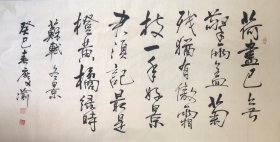 荷盡已無
擎雨蓋菊
残猶有傲霜
枝一年好景
君須記最是
橙黄橘緑時
蘇軾冬景
癸巳春